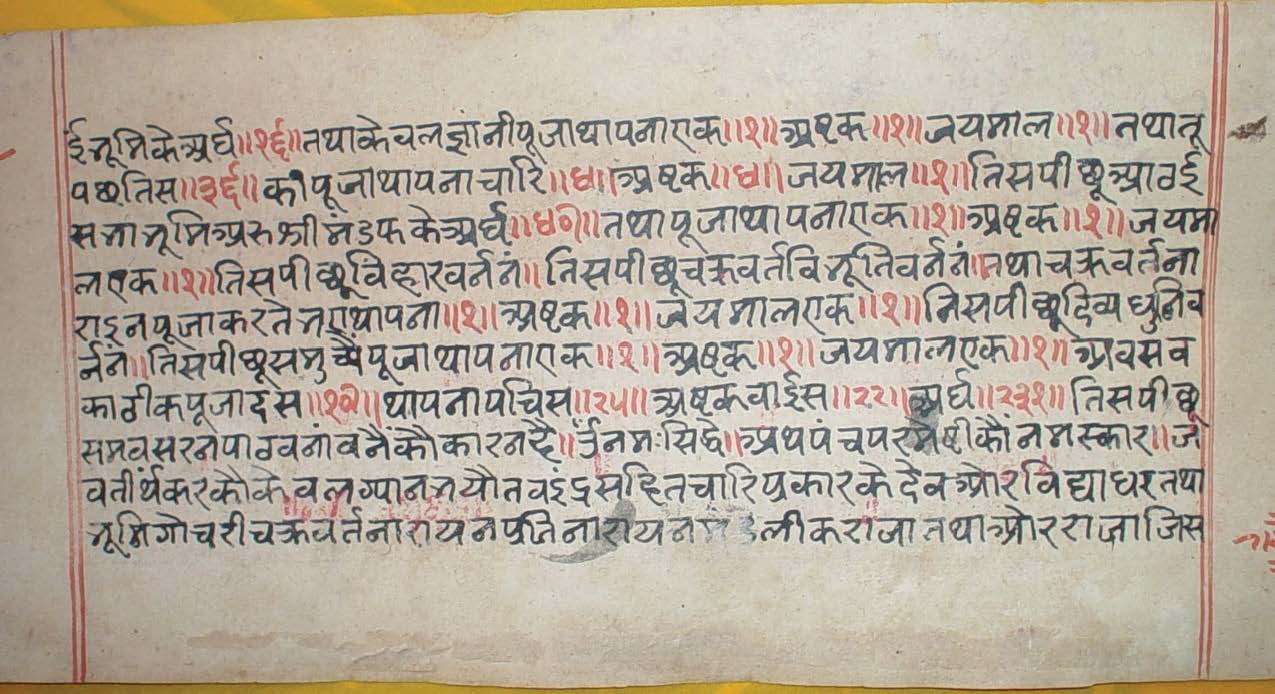 ईभूमिकेअर्घ॥१६॥तथाकेवलज्ञानीपूजाथापनाएक॥१॥अष्टक॥१॥जयमाल॥१॥तथातू
पछतिस॥३६॥कीपूजाथापनाचारि॥४॥अष्टक॥४॥जयमाल॥१॥तिसपीछूआठई
सभाभूमिअरुश्रीमंडफकेअर्घ॥४७॥तथापूजाथापनाएक॥१॥अष्टक॥१॥जयमा
लएक॥१॥तिसपीछूविहारवर्ननं॥तिसपीछूचक्रवर्तविभूतिवर्ननं॥तथाचक्रवर्तना
राइनपूजाकरतेभएथापना॥१॥अष्टक॥१॥जयमालएक॥१॥तिसपीछूदिव्यधुनिव
र्ननं॥तिसपीछूसमुच्चैपूजाथापनाएक॥१॥अष्टक॥१॥जयमालएक॥१॥अवसव
काठीकपूजादस॥१०॥थापनापचिस॥२५॥अष्टकवाईस॥२२॥अर्घ॥२३१॥तिसपीछू
समवसरनपाठवनांवनैंकौकारनहै॥ॐनमःसिद्धे॥अथपंचपरमेष्टीकौंनमस्कार॥ज
वतीर्थंकरकौकेवलग्यानभयौतवइंद्रसहितचारिप्रकारकेदेवओरविद्याधरतथा
भूमिगोचरीचक्रवर्तनारायनप्रतिनारायनमंडलीकराजातथाओरराजाजिस